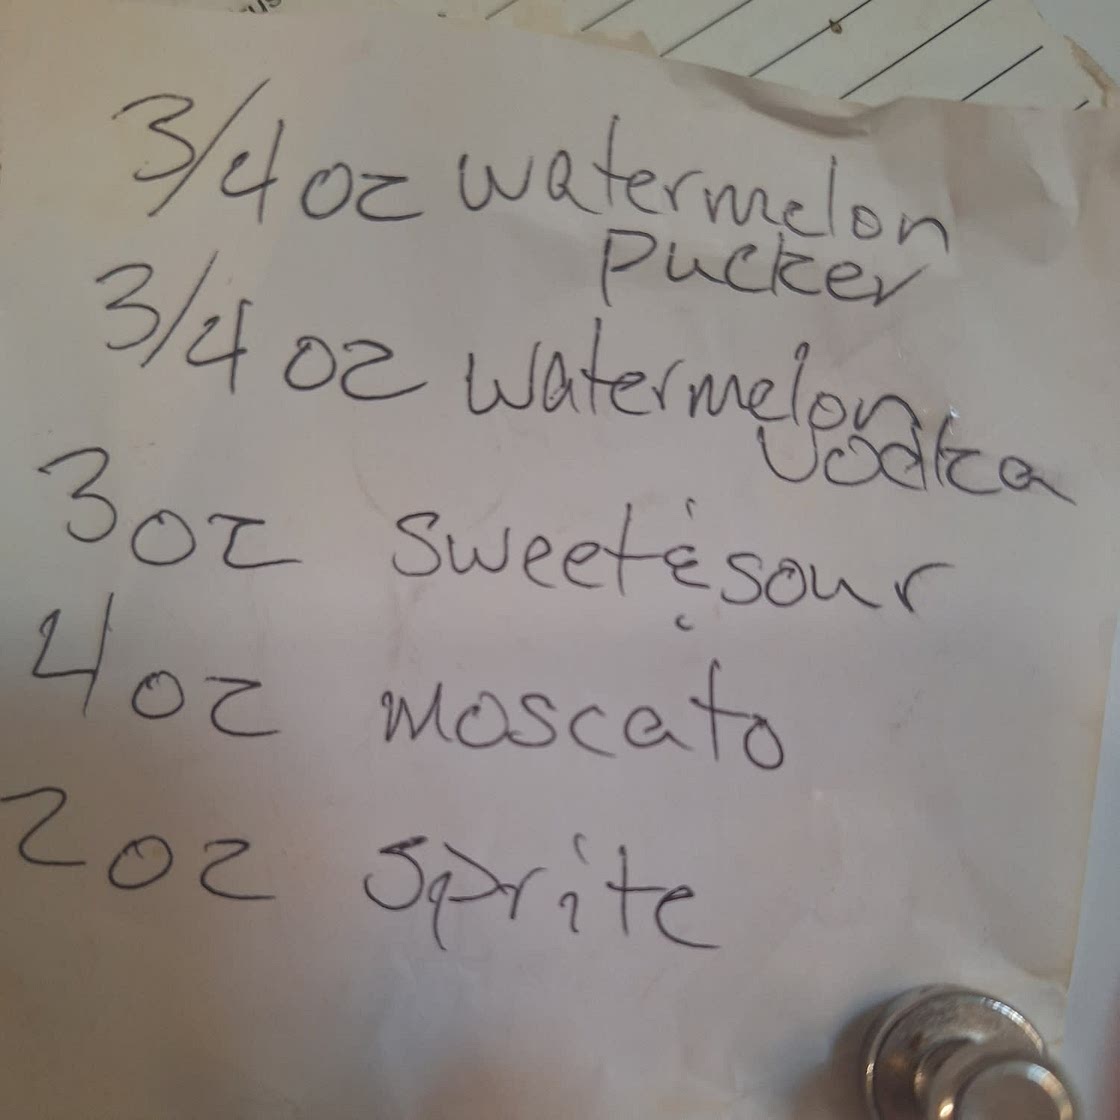 3/4 oz watermelon
pucker
3/4 oz watermelon
vodka
3 oz sweet & sour
4 oz moscato
2 oz sprite